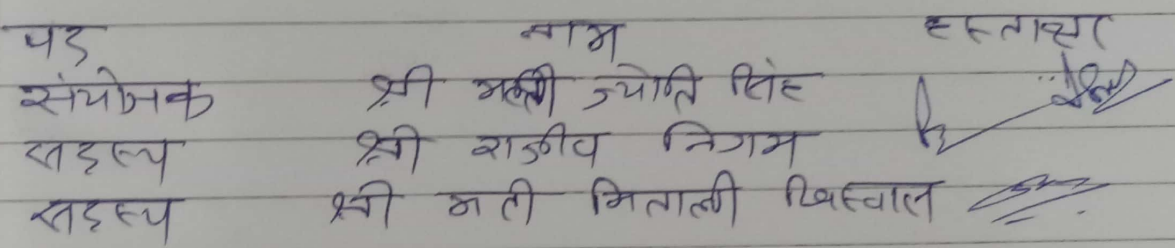 पद नाम हस्ताक्षर
संयोजक श्री मती ज्योति सिंह
सदस्य श्री राजीव निगम
सदस्य श्री मती मिताली